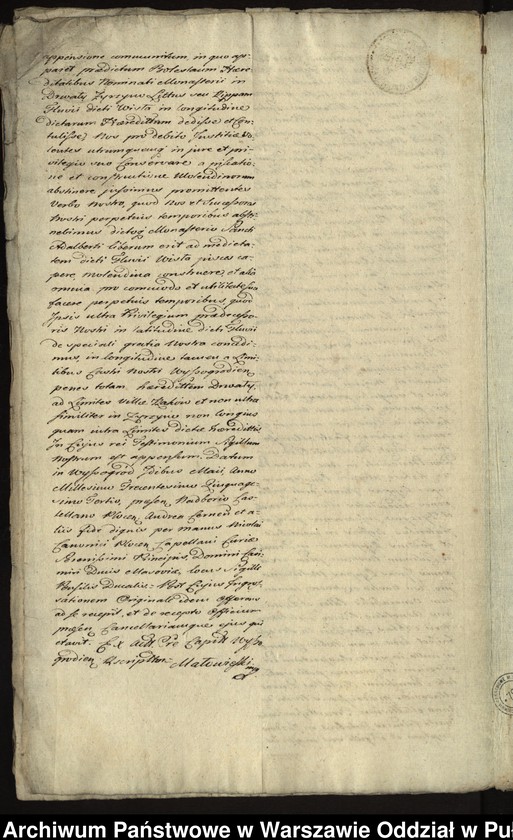 appensione communitum, in quo ap-
paret prædictum Boleslaum Hære-
ditatibus Nominati Monasterii in
Drwały Zyrzyno Littus seu Rippam
Fluvii dicti Wisła in longitudine
dictarum Hæreditum dedisse et Con-
tulisse, Nos pro debito Justitiæ Vo-
lentes utrumque in jure et pri-
vilegio suo Conservare a
ne et constructione Molendinorum
abstinere promittentes
Verbo Nostro, quod Nos et Successores
Nostri perpetuis temporibus absti-
nebimus dictoq Monasterio Sancti
Adalberti liberum erit ad medieta-
tem dicti Fluvii Wisła pisces ca-
pere, molendina construere, et alia
omnia pro commodo et utilitate sua
facere perpetuis temporibus, quod
Ipsis ultra Privilegium prædecesso-
ris Nostri in latitudine dicti Fluvii
de speciali gratia Nostra concedi-
mus, in longitudine tamen a Limi-
tibus Nostri Wyssogrodien
penes totam hæreditem Drwały,
ad Limites Villæ Raków et non ultra
similiter in Zyrzyno non longius
quam intra Limites dictæ hæreditis
In Cujus rei Testimonium Sigillum
Nostrum est appensum. Datum
in Wyssogrod Idibus Maii, Anno
Millesimo Trecentesimo Quinquage-
simo Tertio, præsen Nadborio Cas-
tellano Plocen Andrea et a-
liis fide dignis per manus Nicolai
Canonici Plocen Capellani Curiæ
Serenissimi Principis, Domini Casi-
miri Ducis Masoviæ, locus Sigilli
Pensilis Ducalis. Post Cujus Ingros-
sationem Originale idem Offerens
ad se recepit, et de recepto Officium
præsen Cancellariamque ejus qui-
etavit. Ex Actis Cre Capitt Wysso
grodien Rescriptum Małowieski
mp
Archiwum Państwowe w Warszawie Oddział w Pu